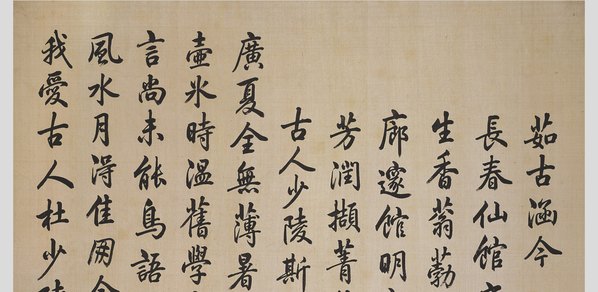 茹古涵今
長春仙館
生香蓊勃
廊邃館明
芳潤擷菁
古人少陵斯
廣夏全無薄暑
壺氷時溫舊學
言尚未能鳥語
風水月淂佳罔今
我愛古人杜少陵